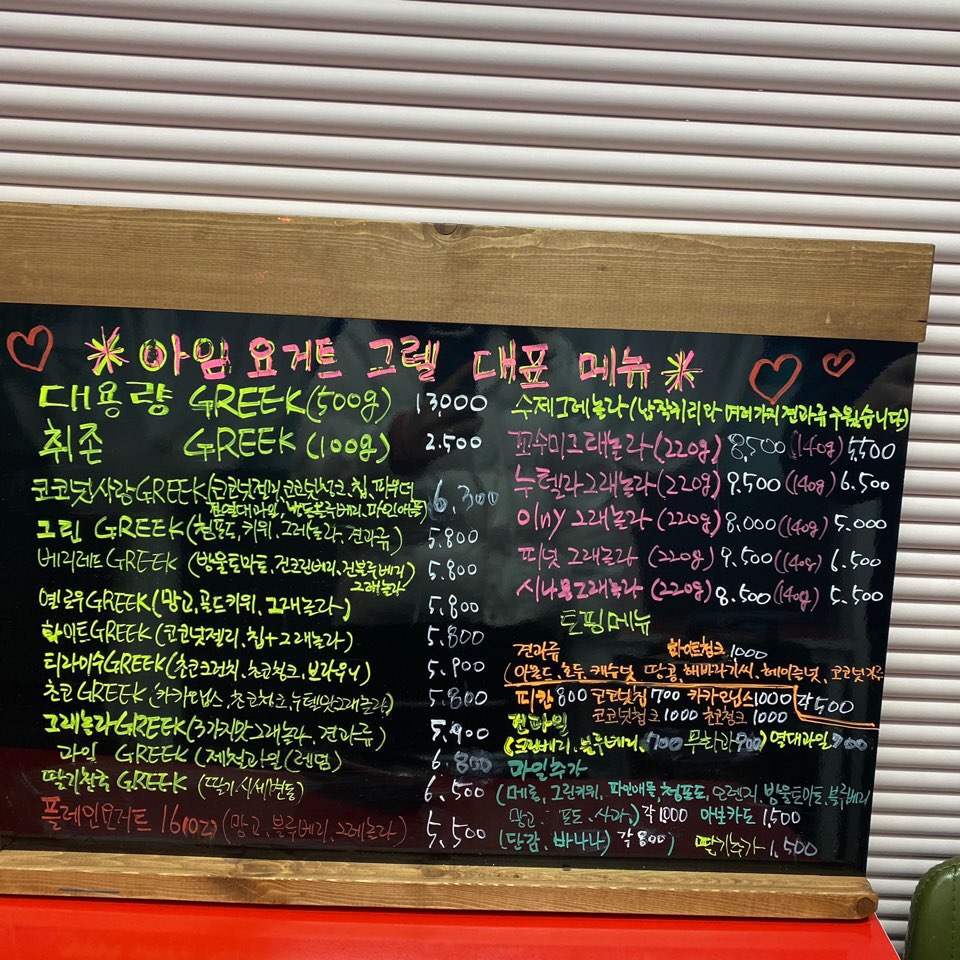 아임 요거트 그렐 대표 메뉴
대용량 GREEK (500g) 13,000
취존 GREEK (100g) 2.500
코코넛사랑GREEK(코코넛젤리,코코넛청크,칩,파우더
건열대과일, 건블루베리, 파인애플) 6.300
그린 GREEK (청포도, 키위, 그래놀라, 견과류) 5.800
베리레드GREEK (방울토마토, 건크린베리, 건블루베리
그래놀라) 5.800
옐로우GREEK(망고,골드키위,그래놀라) 5.800
화이트GREEK(코코넛젤리,칩+그래놀라) 5.800
티라이수GREEK(초코크런치,초코청크,브라우니) 5.900
초코GREEK (카카오닙스,초코청크,누텔맛그래놀라) 5.800
그래놀라GREEK(3가지맛그래놀라,견과류) 5.900
과일 GREEK (제철과일(랜덤) 6.800
딸기한축 GREEK (딸기.시세변동) 6.500
플레인요거트 16(oz) (망고,블루베리,그레놀라) 5,500
수제그레놀라(납작귀리와 여러가지 견과류 구웠습니다)
꼬수미그래놀라(220g) 8,500 (140g) 5,500
누텔라그래놀라(220g) 9.500 (140g) 6.500
어ny그래놀라 (220g) 8,000 (140g) 5.000
피넛 그래놀라 (220g) 9.500 (140g) 6.500
시나몬그래놀라 (220g) 8.500 (140g) 5.500
토핑메뉴
견과류 화이트청크 1000
(아몬드,호두,캐슈넛,땅콩,해바라기씨,헤이즐넛,코코넛가루 각500
피칸 800 코코넛칩 700 카카오닙스1000
코코넛청크 1000 초코청크 1000
건과일
(크린베리,블루베리,700 무화과900) 열대과일900
과일추가
(메론,그린키위,파인애플,청포도,오렌지,방울토마토,블루베리
망고, 포도,사과,) 각 1,000 아보카도 1,500
(단감, 바나나) 각 800) 딸기추가 1,500